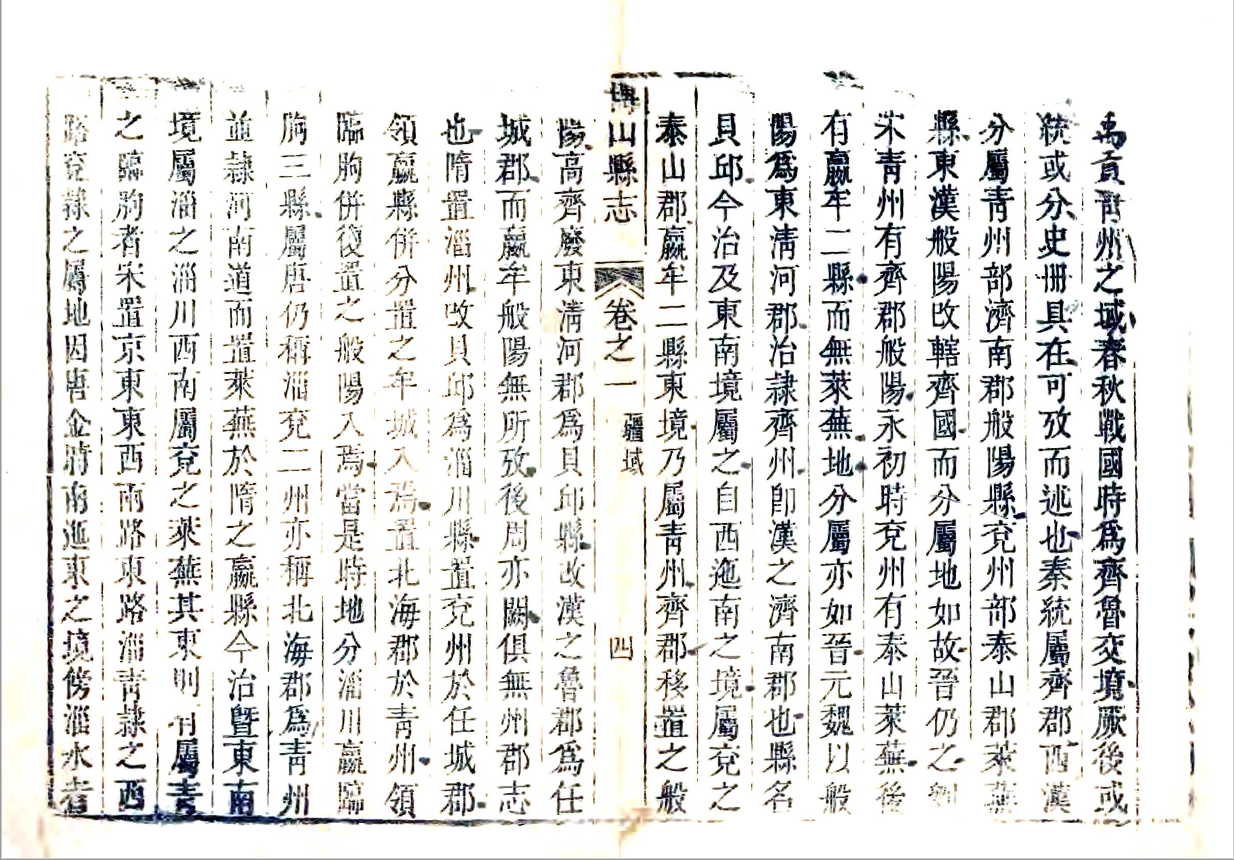 禹貢青州之域春秋戰國時爲齊魯交墳厥後或
統或分史冊具在可攷而述也秦統屬齊郡西漢
分屬青州部濟南郡般陽縣兗州部泰山郡萊蕪
縣東漢般陽改轄齊國而分屬地如故晉仍之
宋青州有齊郡般陽永初時兗州有泰山萊蕪後
有嬴牟二縣而無萊蕪地分屬亦如晉元魏以般
陽爲東清河郡治隷齊州卽漢之濟南郡也縣名
貝邱今治及東南境屬之自西迤南之境屬兗之
泰山郡嬴牟二縣東境乃屬青州齊郡移置之般
博山縣志 卷之一 疆域 四
陽高齊廢東清河郡爲貝邱縣改漢之魯郡爲任
城郡而嬴牟般陽無所攷後周亦闕俱無州郡志
也隋置淄州改貝邱爲淄川縣置兗州於任城郡
領嬴縣併分置之牟城入焉置北海郡於青州領
臨朐併復置之般陽入焉當是時地分淄川嬴臨
朐三縣屬唐仍稱淄兗二州亦稱北海郡爲青州
並隷河南道而置萊蕪於隋之嬴縣今治曁東南
境屬淄之淄川西南屬兗之萊蕪其東則有屬青
之臨朐者宋置京東東西兩路東路淄青隷之西
路兗隷之屬地因唐金時南迤東之境傍淄水者